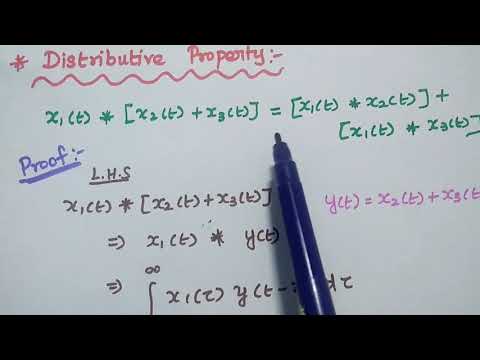 * Distributive Property:-
x₁(t) * [x₂(t) + x₃(t)] = [x₁(t) * x₂(t)] +
[x₁(t) * x₃(t)]
Proof:-
L.H.S
x₁(t) * [x₂(t) + x₃(t)]
y(t) = x₂(t) + x₃(t
⇒ x₁(t) * y(t)
∞
⇒ ∫ x₁(τ) y(t- dτ